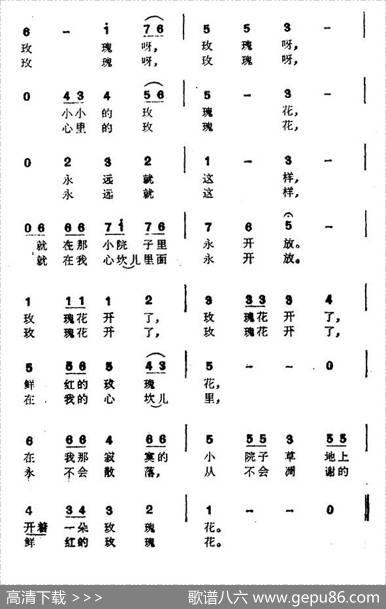 6 - i 76 | 5 5 3 - |
玫 瑰 呀, 玫 瑰 呀,
玫 瑰 呀, 玫 瑰 呀,
0 43 4 56 | 5 - 3 - |
小小 的 玫 瑰 花,
心里 的 玫 瑰 花,
0 2 3 2 | 1 - 3 - |
永 远 就 这 样,
永 远 就 这 样,
06 66 7i 76 | 7 6 5 - |
就 在那 小院 子里 永 开 放。
就 在我 心坎儿 里面 永 开 放。
1 11 1 2 | 3 33 3 4 |
玫 瑰花 开 了, 玫 瑰花 开 了,
玫 瑰花 开 了, 玫 瑰花 开 了,
5 56 5 43 | 5 - - 0 |
鲜 红的 玫 瑰 花,
在 我的 心 坎儿 里,
6 66 4 66 | 5 55 3 55 |
在 我那 寂 寞的 小 院子 草 地上
永 不会 散 落, 从 不会 凋 谢的
4 34 3 2 | 1 - - 0 ‖
开着 一朵 玫 瑰 花。
鲜 红的 玫 瑰 花。
高清下载 >>>
歌谱八六 www.gepu86.com